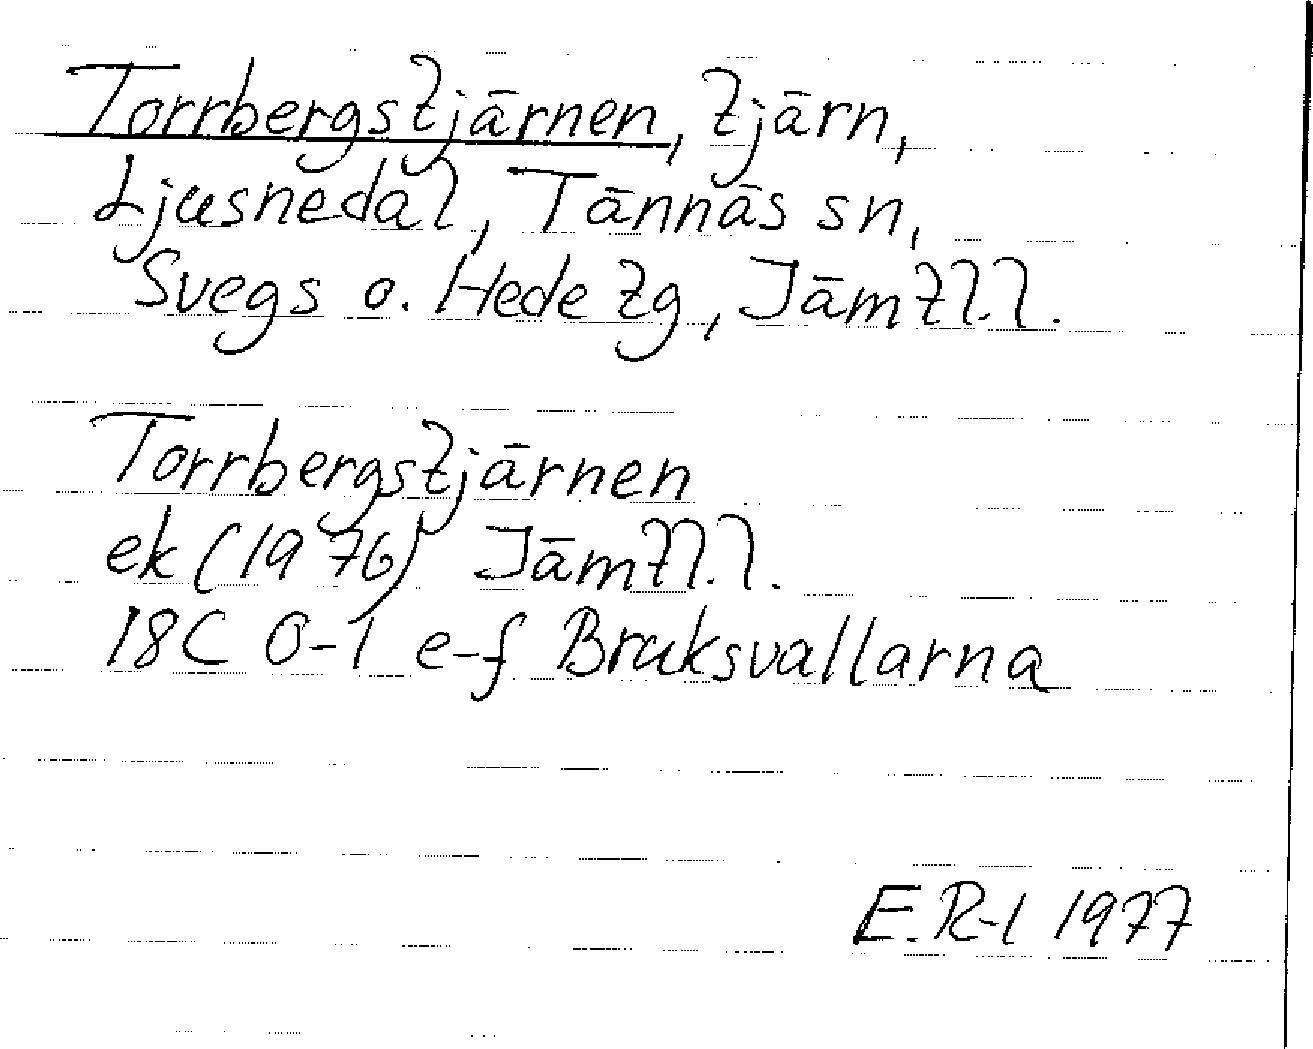 Torrbergstjärnen, tjärn,
Ljusnedal, Tännäs sn,
Svegs o. Hede tg, Jämtl.l.
Torrbergstjärnen
ek (1976) Jämtl.l.
18C 0-1 e-f Bruksvallarna
E.R-l 1977